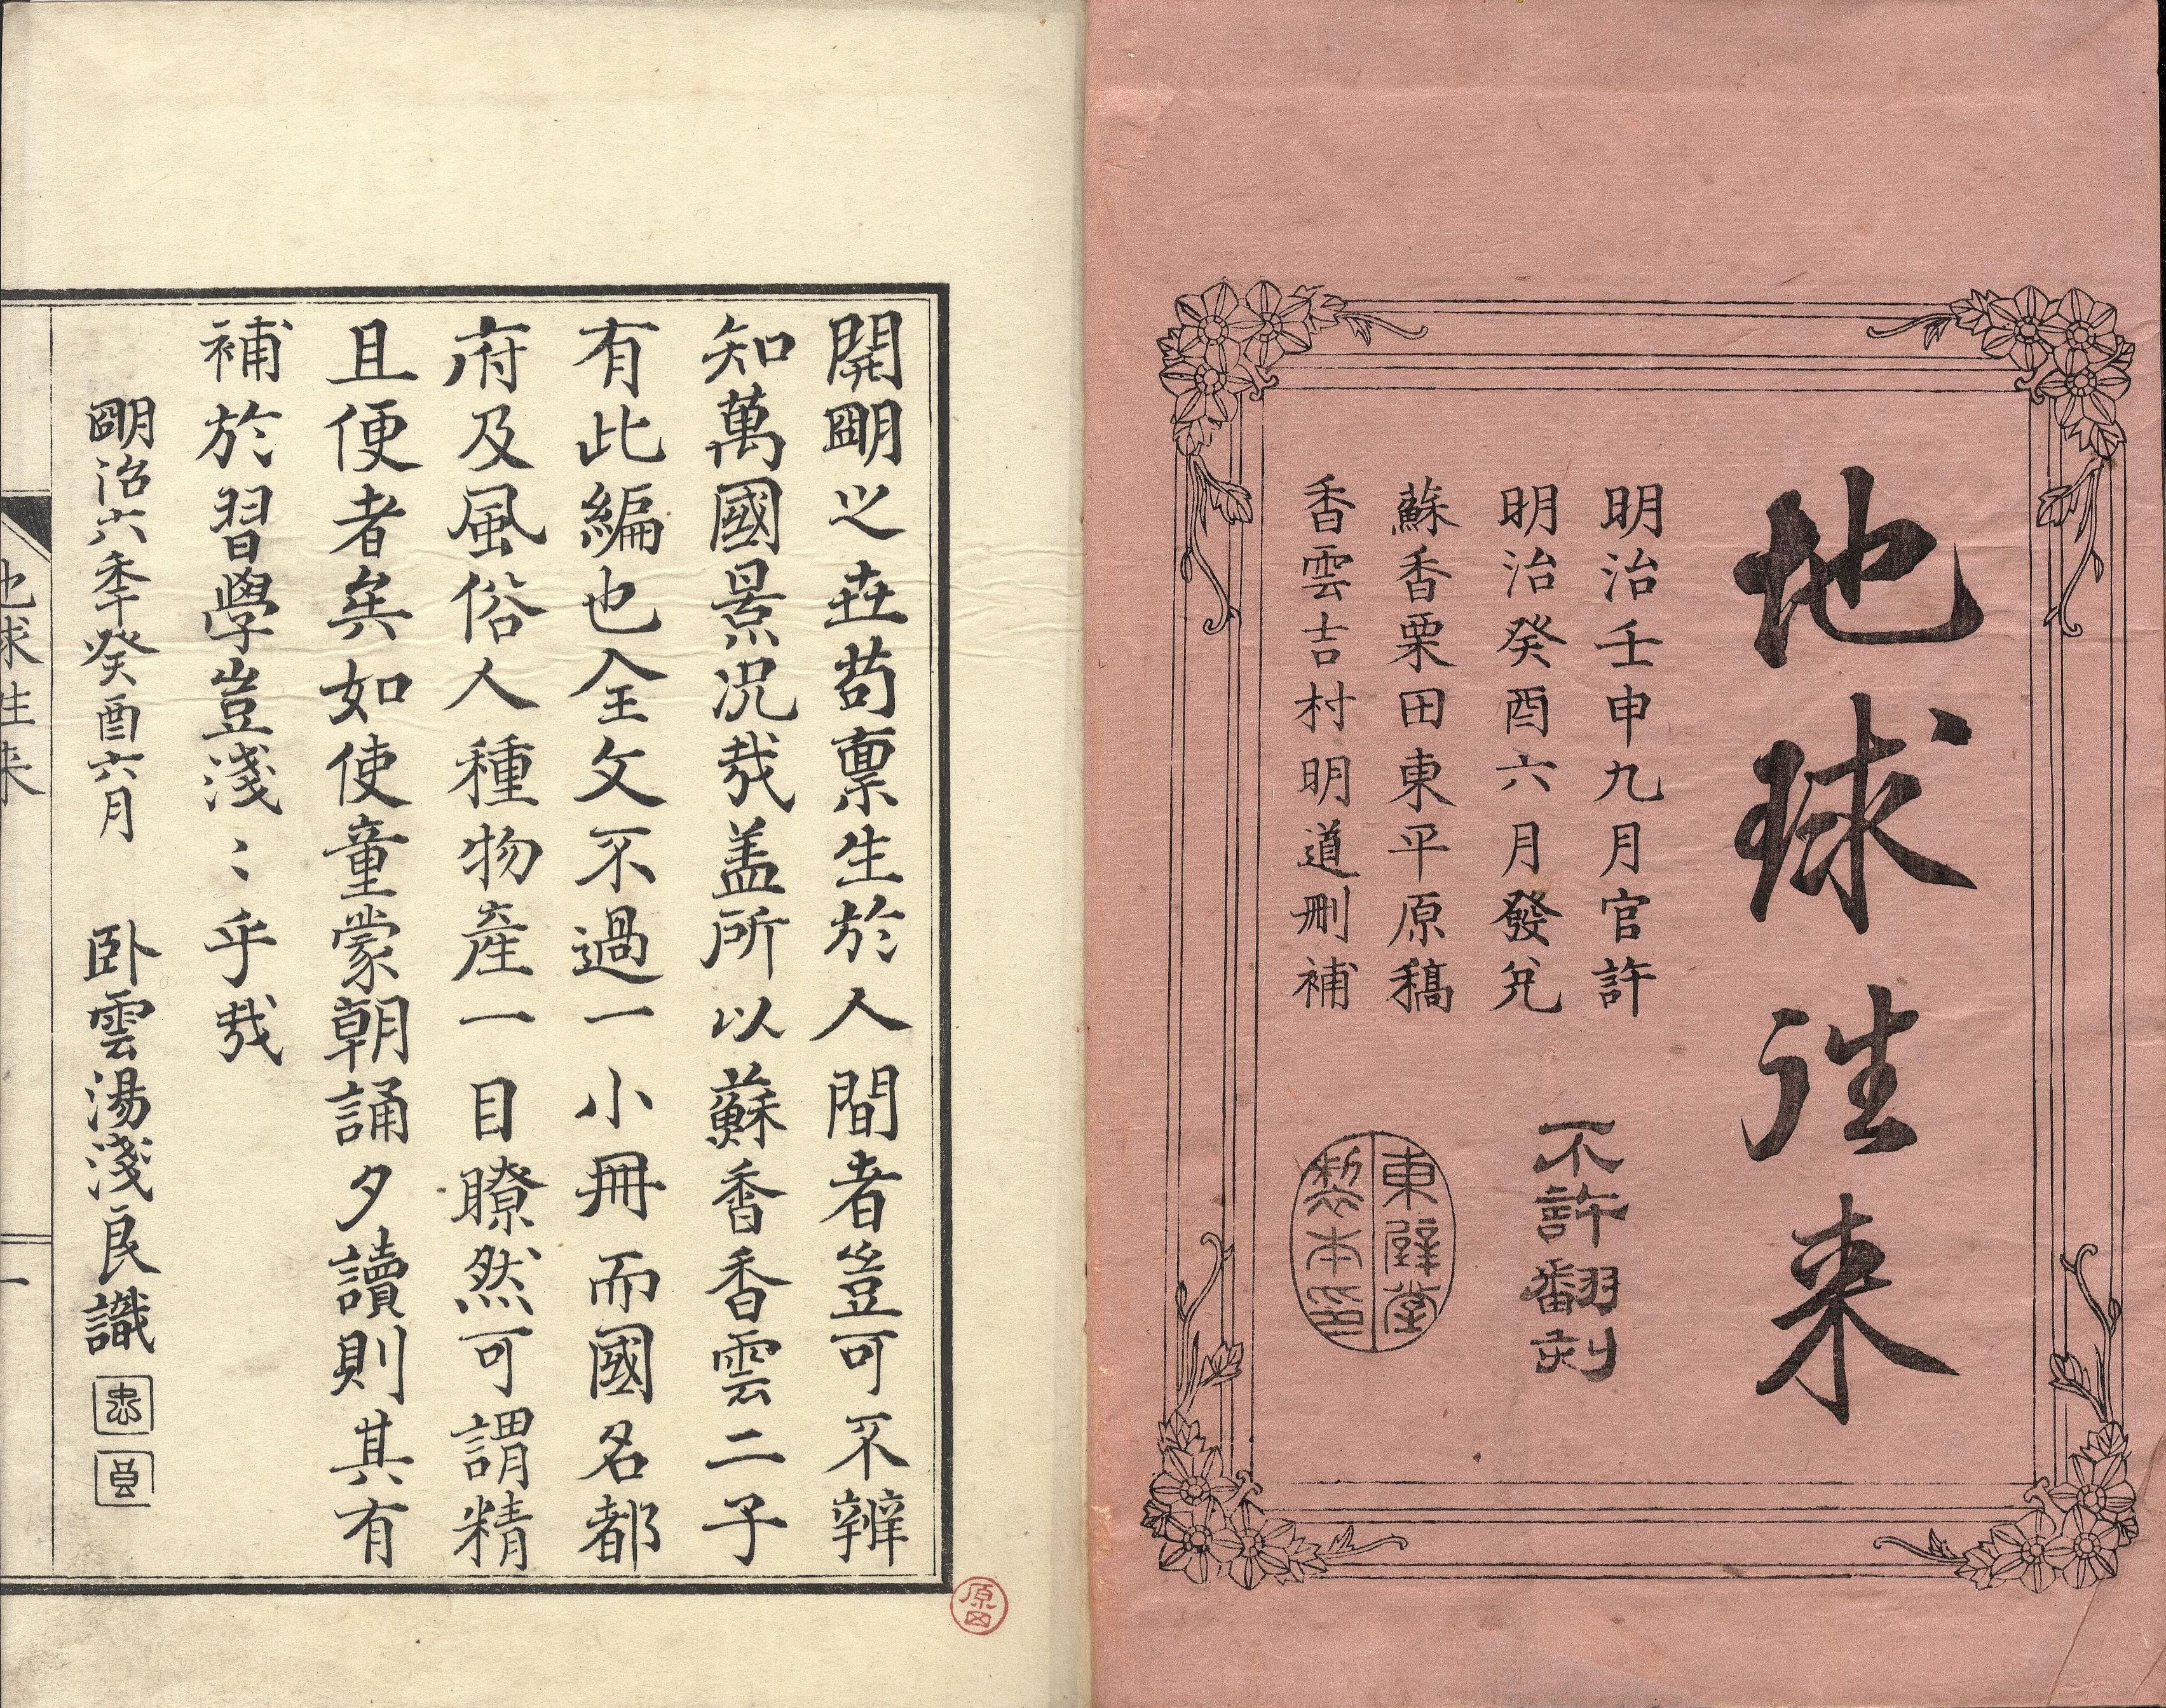 地球往来
明治壬申九月官許
明治癸酉六月發兌
蘇香栗田東平原稿
香雲吉村明道刪補
不許翻刻
東壁堂
製本記
開朙之丗苟禀生於人間者豈可不辨
知萬國景况哉盖所以蘇香香雲二子
有此編也全文不過一小冊而國名都
府及風俗人種物産一目瞭然可謂精
且便者矣如使童蒙朝誦夕讀則其有
補於習學豈淺〻乎哉
朙治六季癸酉六月　卧雲湯淺良識
地球往来
一